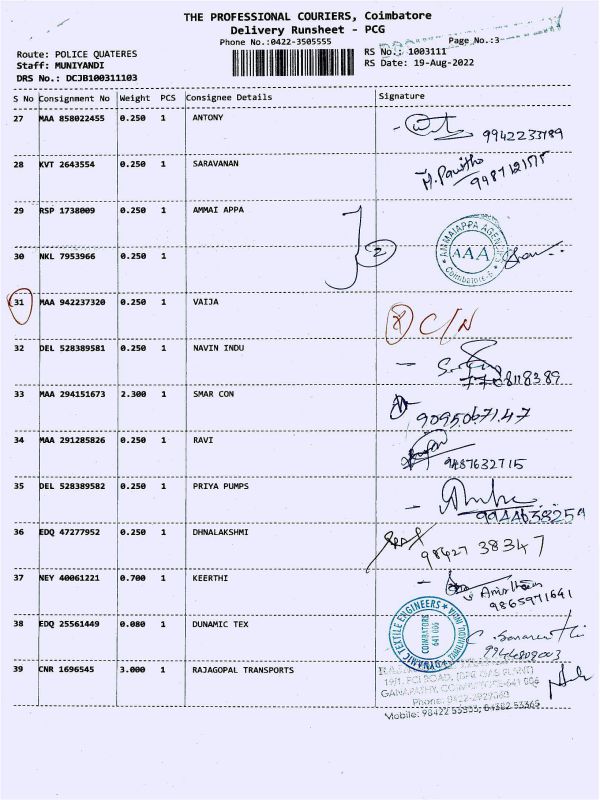 THE PROFESSIONAL COURIERS, Coimbatore
Delivery Runsheet - PCG
Phone No.:0422-3505555
Page No.:3
Route: POLICE QUATERES
RS No.: 1003111
Staff: MUNIYANDI
RS Date: 19-Aug-2022
DRS No.: DCJB100311103
S No Consignment No Weight PCS Consignee Details Signature
27 MAA 858022455 0.250 1 ANTONY
9942233789
28 KVT 2643554 0.250 1 SARAVANAN
29 RSP 1738009 0.250 1 AMMAI APPA
2
AMMAIAPPA AGENCIES
AAA
Coimbatore
30 NKL 7953966 0.250 1
31 MAA 942237320 0.250 1 VAIJA
C/N
32 DEL 528389581 0.250 1 NAVIN INDU
7708118389
33 MAA 294151673 2.300 1 SMAR CON
9095067147
34 MAA 291285826 0.250 1 RAVI
9487632715
35 DEL 528389582 0.250 1 PRIYA PUMPS
9944638259
36 EDQ 47277952 0.250 1 DHNALAKSHMI
98427 38347
37 NEY 40061221 0.700 1 KEERTHI
9865971641
38 EDQ 25561449 0.080 1 DUNAMIC TEX
DYNAMIC TEXTILE ENGINEERS
TAMILNADU, INDIA
COIMBATORE
641 006
39 CNR 1696545 3.000 1 RAJAGOPAL TRANSPORTS
GANAPATHY, COIMBATORE-641 006
Phone: 0422-2929060
Mobile: 98422 53333, 04382 53365